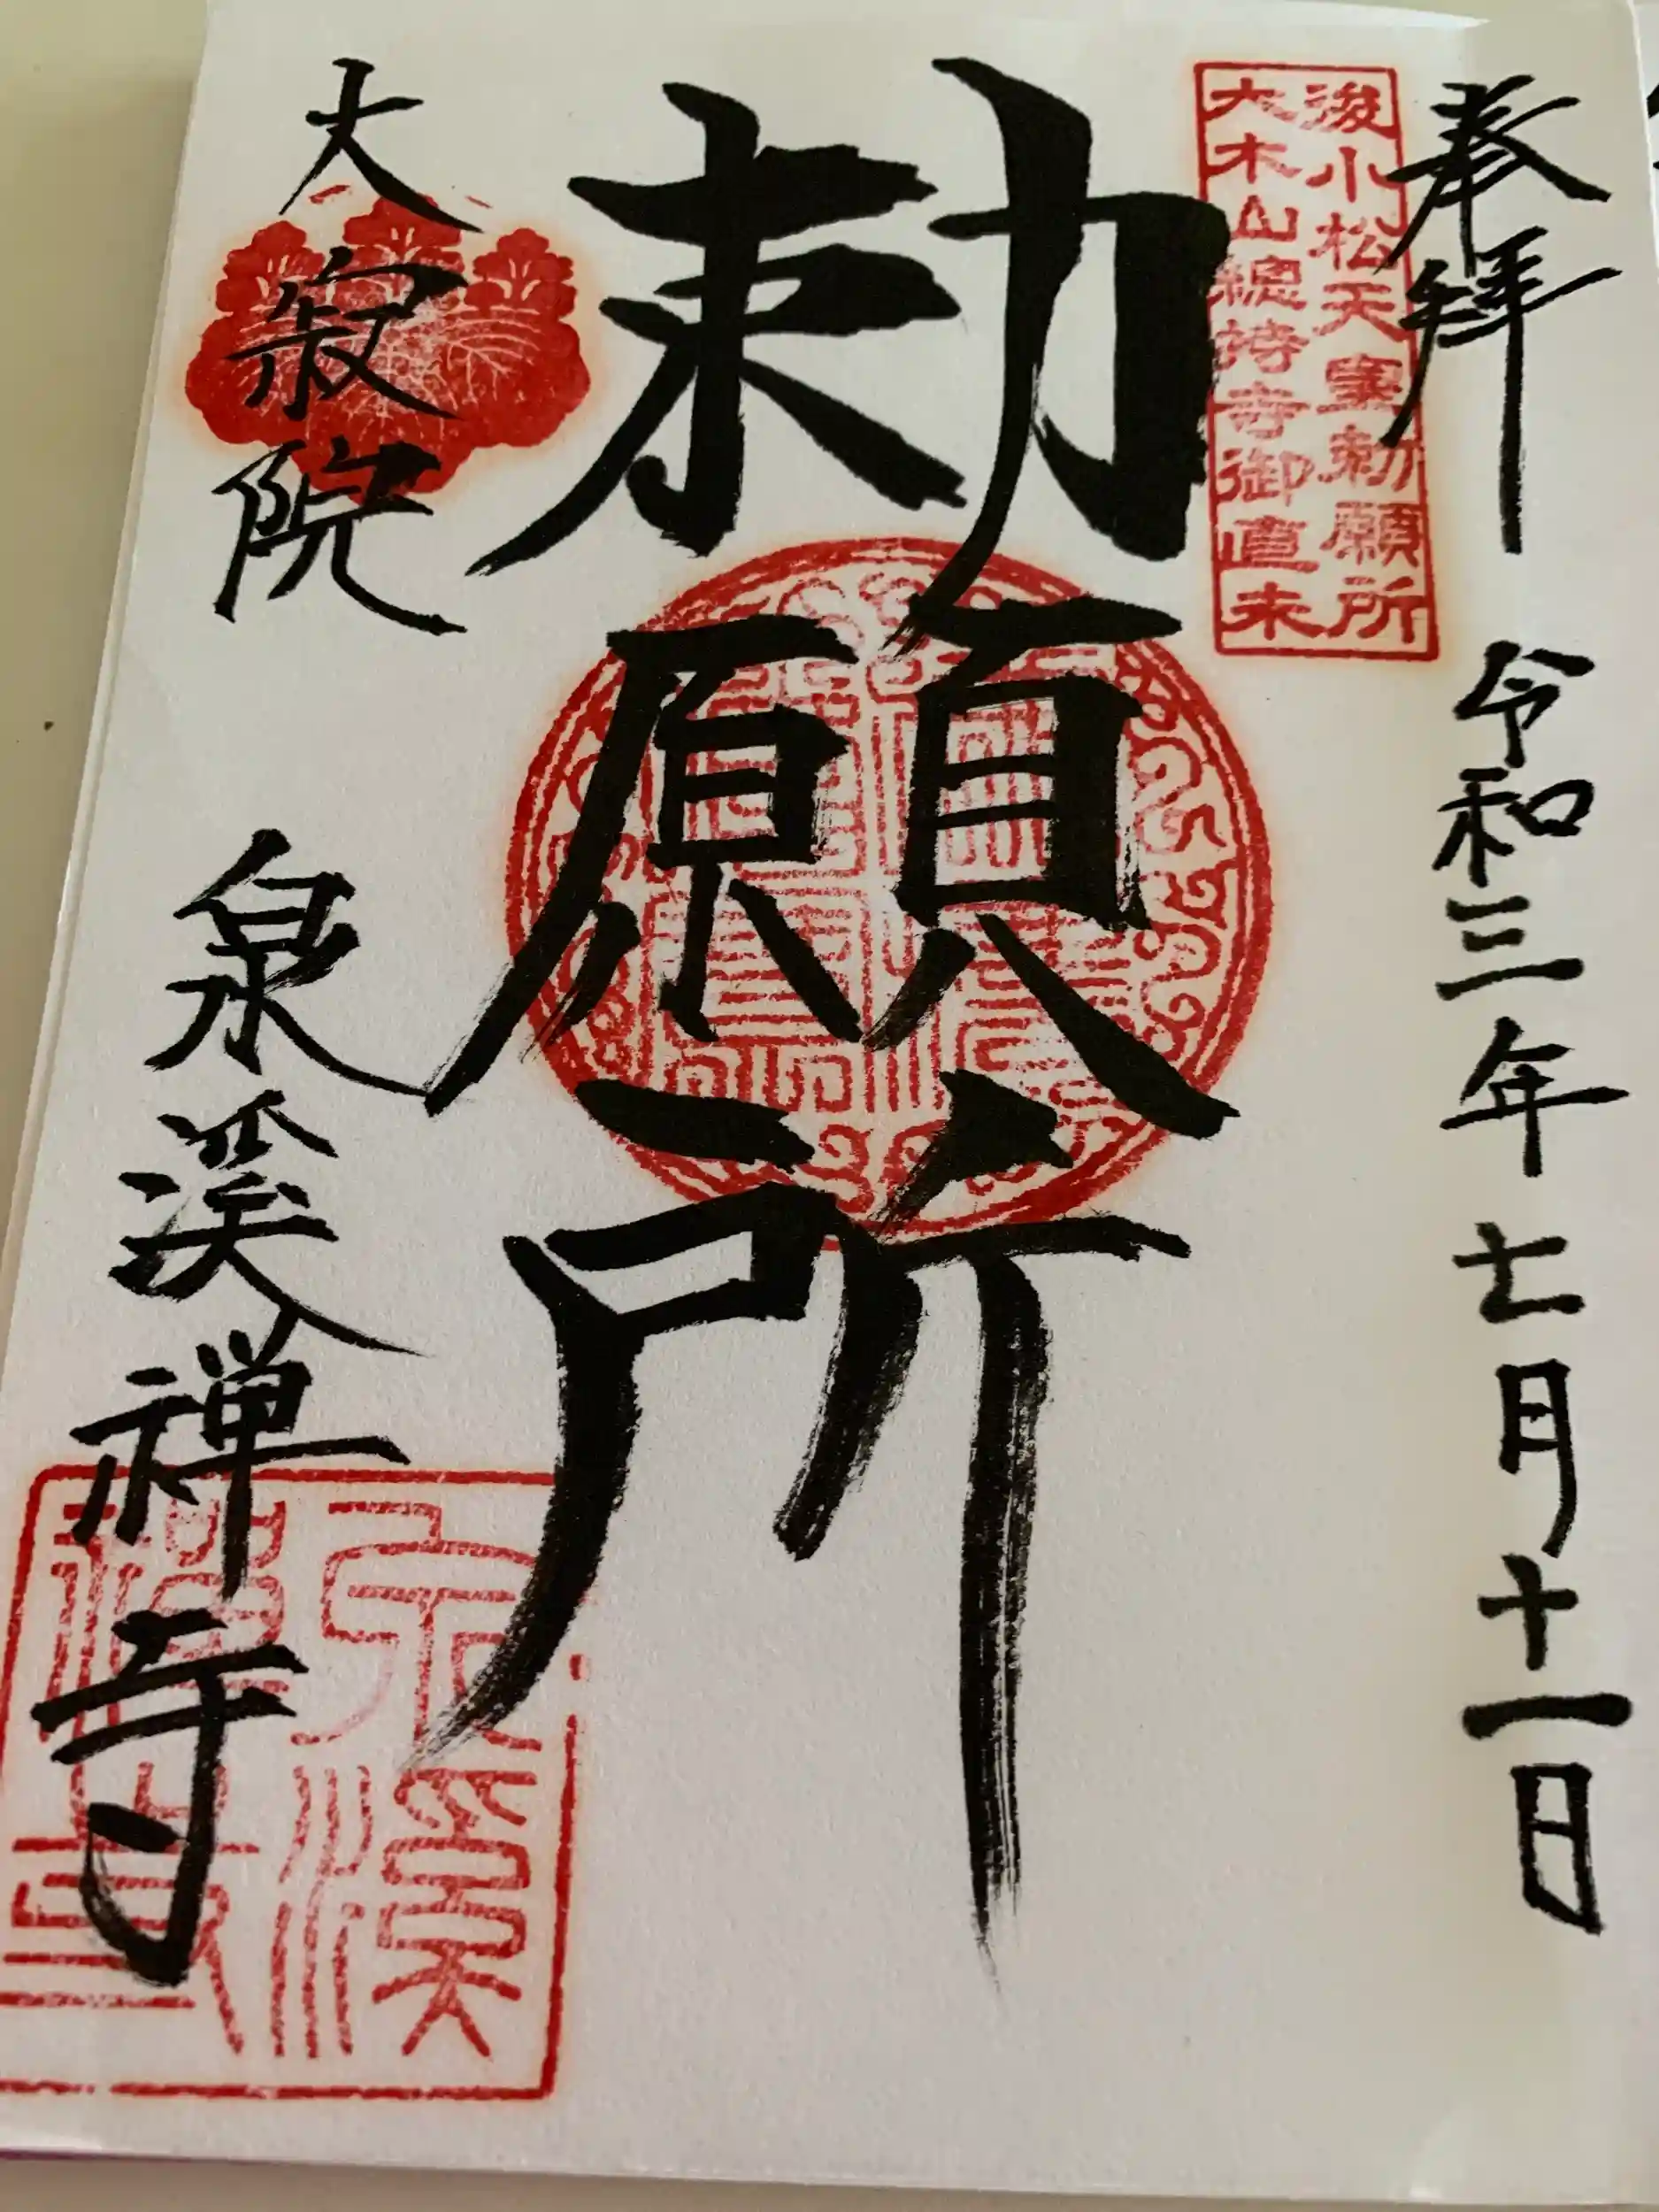 奉拝 令和三年七月十一日
後小松天皇勅願所
大本山總持寺御直末
勅願所
大寂院 泉溪禅寺
泉溪
禅寺